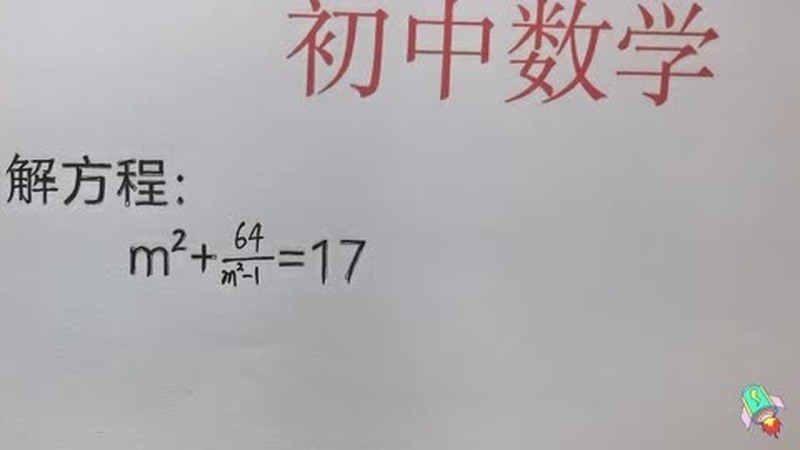 初中数学
解方程:
m²+64/(m²-1)=17